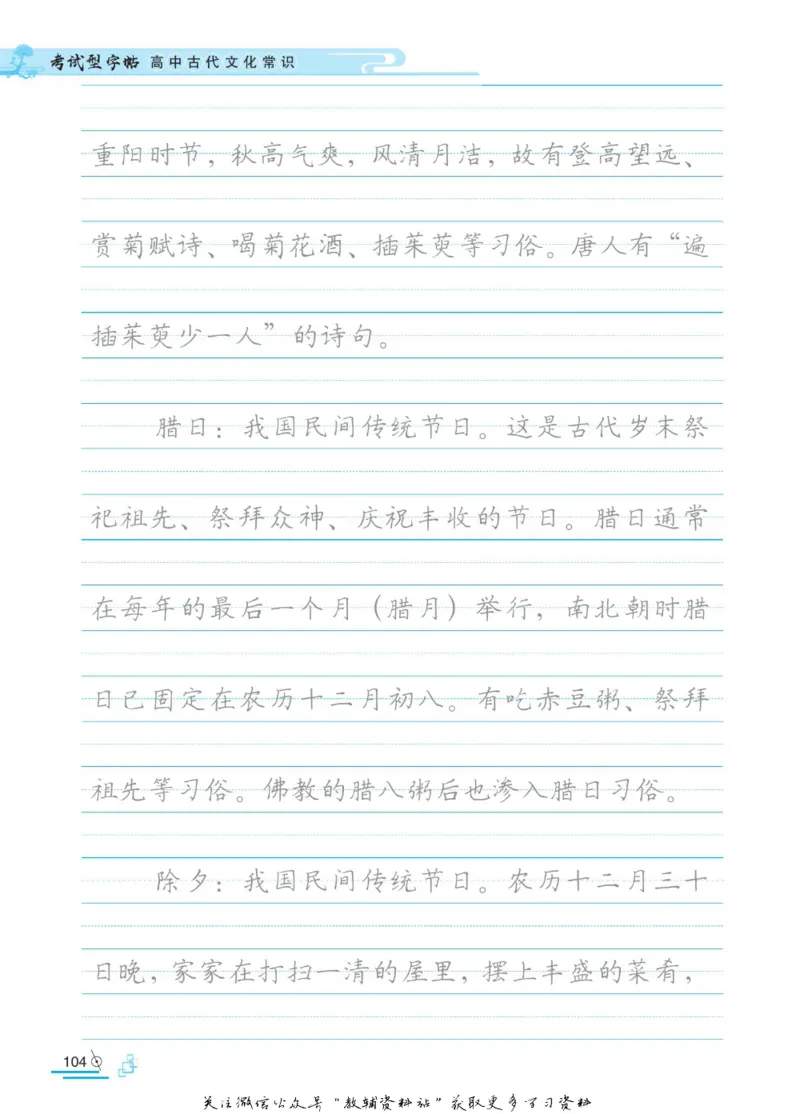 考试型字帖 高中古代文化常识
重阳时节，秋高气爽，风清月洁，故有登高望远、
赏菊赋诗、喝菊花酒、插茱萸等习俗。唐人有“遍
插茱萸少一人”的诗句。
腊日：我国民间传统节日。这是古代岁末祭
祀祖先、祭拜众神、庆祝丰收的节日。腊日通常
在每年的最后一个月（腊月）举行，南北朝时腊
日已固定在农历十二月初八。有吃赤豆粥、祭拜
祖先等习俗。佛教的腊八粥后也渗入腊日习俗。
除夕：我国民间传统节日。农历十二月三十
日晚，家家在打扫一清的屋里，摆上丰盛的菜肴，
104
关注微信公众号“教辅资料站”获取更多学习资料